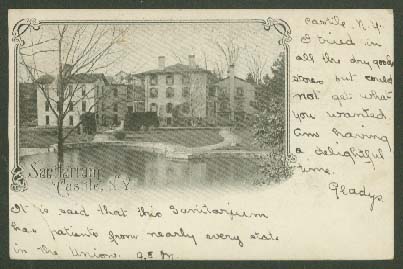 Castile, N.Y.
I tried in
all the dry goods
stores but could
not get what
you wanted
Am having
a delightful
time.
Gladys
Sanitarium
Castile, N.Y.
It is said that this Sanitarium
has patients from nearly every state
in the Union. G.E.M.